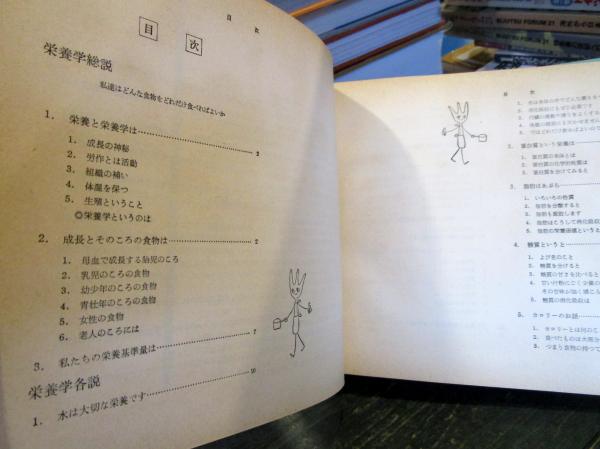 目 次
目 次
栄養学総説
私達はどんな食物をどれだけ食べればよいか
1. 栄養と栄養学は…………………… 2
1. 成長の神秘
2. 労作とは活動
3. 組織の補い
4. 体温を保つ
5. 生殖ということ
◎栄養学というのは
2. 成長とそのころの食物は…………………… 2
1. 母血で成長する胎児のころ
2. 乳児のころの食物
3. 幼少年のころの食物
4. 青壮年のころの食物
5. 女性の食物
6. 老人のころには
3. 私たちの栄養基準量は…………………… 7
栄養学各説 10
1. 水は大切な栄養です……………………
目 次
2. 蛋白質という栄養は……………………
1. 蛋白質の本体とは
2. 蛋白質の化学的性質は
3. 蛋白質を分けてみると
3. 脂肪はあぶら……………………
1. いろいろの性質
2. 脂肪を分類すると
3. 脂肪も重合します
4. 脂肪はこうして消化吸収
5. 脂肪の栄養価値というと
4. 糖質というと……………………
1. よび名のこと
2. 糖質を分けると
3. 糖質の甘さを比べると
5. 糖質の消化吸収は
5. カロリーのお話……………………
1. カロリーとは何のこ
2. 食べたものは大部分
3. つまり食物の持つて
BUJUTSU FORUM 21